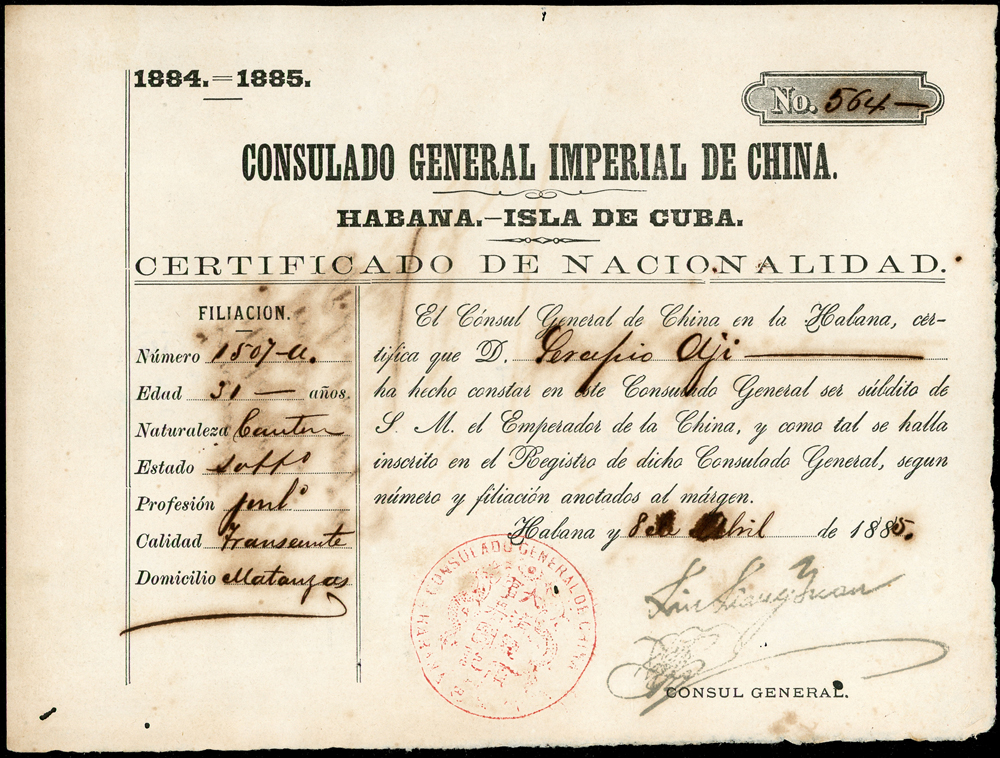 1884.=1885.
No. 564—
CONSULADO GENERAL IMPERIAL DE CHINA.
HABANA.–ISLA DE CUBA.
CERTIFICADO DE NACIONALIDAD.
FILIACION.
Número 1507-a.
Edad 31 — años.
Naturaleza Canton
Estado solto
Profesión jorlo
Calidad Transeunte
Domicilio Matanzas
El Cónsul General de China en la Habana, cer-
tifica que D. Serapio Aji
ha hecho constar en este Consulado General ser súbdito de
S. M. el Emperador de la China, y como tal se halla
inscrito en el Registro de dicho Consulado General, segun
número y filiación anotados al márgen.
Habana y 8 de Abril de 1885.
CONSULADO GENERAL DE CHINA
Liu Liang Yuan
CONSUL GENERAL.